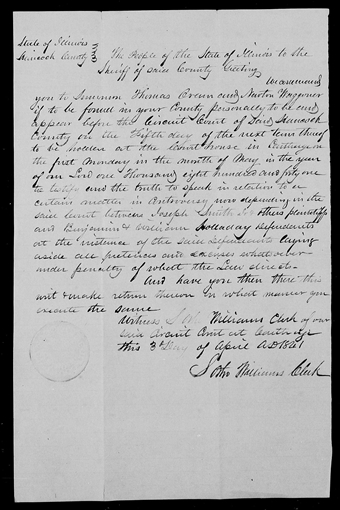 State of Illinois
Hancock County
The People of the State of Illinois to the
Sheriff of said County Greeting
We command
you to Summon Thomas Brown and Newton Waggoner
if to be found in your County personally to be and
appear before the Circuit Court of Said Hancock
County on the Fifth day of the next term thereof
to be holden at the Court house in Carthage on
the first Monday in the month of May in the year
of our Lord one thousand eight hundred and forty one
to testify and the truth to speak in relation to a
certain matter in Controversy now depending in the
said Court between Joseph Smith & others plaintiffs
and Benjamin & William Holladay Defendants
at the instance of the said Defendants laying
aside all pretences and excuses whatsoever
under penalty of what the Law directs
And have you then there this
writ & make return thereon in what manner you
execute the same
Witness Williams Clerk of our
said Circuit Court at Carthage
this 3d day of April AD 1841
John Williams Clerk